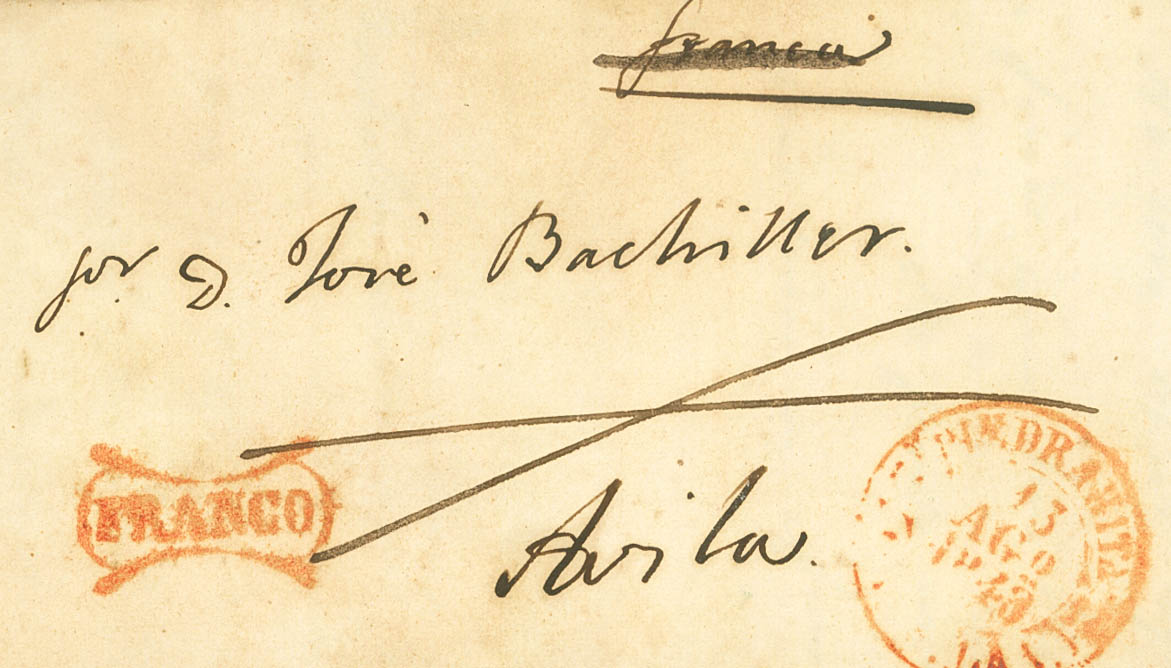 franca
Sor D. Josè Bachiller.
FRANCO
Avila.
PIEDRAHITA
13
AGO